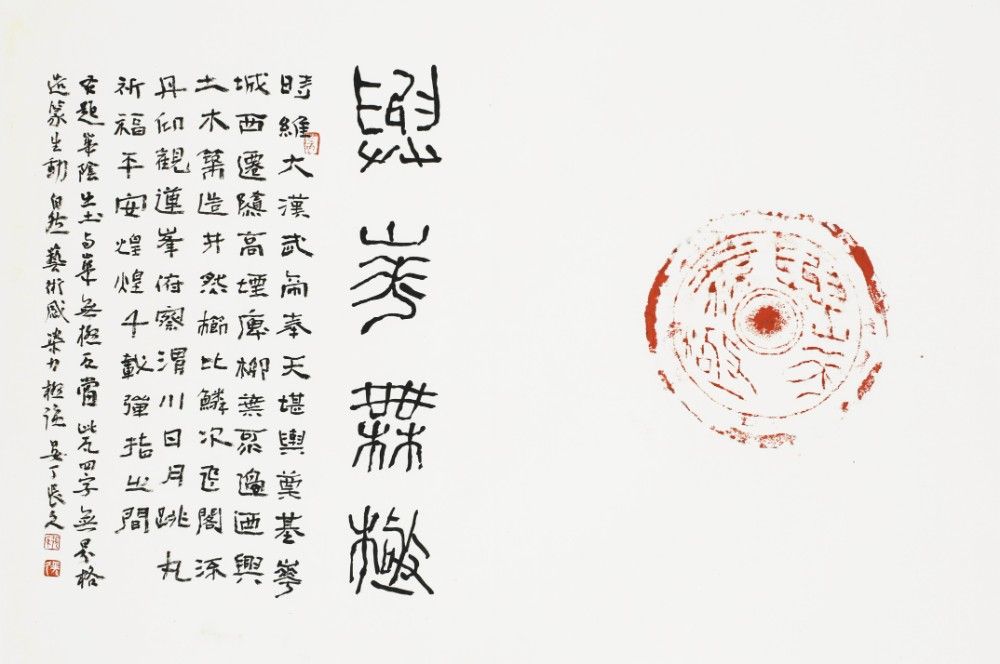 與華無極
與華無極
時維大漢武帝奉天堪輿奠基華
城西遷隨高堙庳柳葉邊迺興
土木築造井然櫛比鱗次飛閣深
丹仰觀蓮峯俯察渭川日月跳丸
祈福平安煌煌千載彈指之間
右題華陰出土与華無極瓦當此瓦四字無界格
造篆生動自然藝術感染力極強